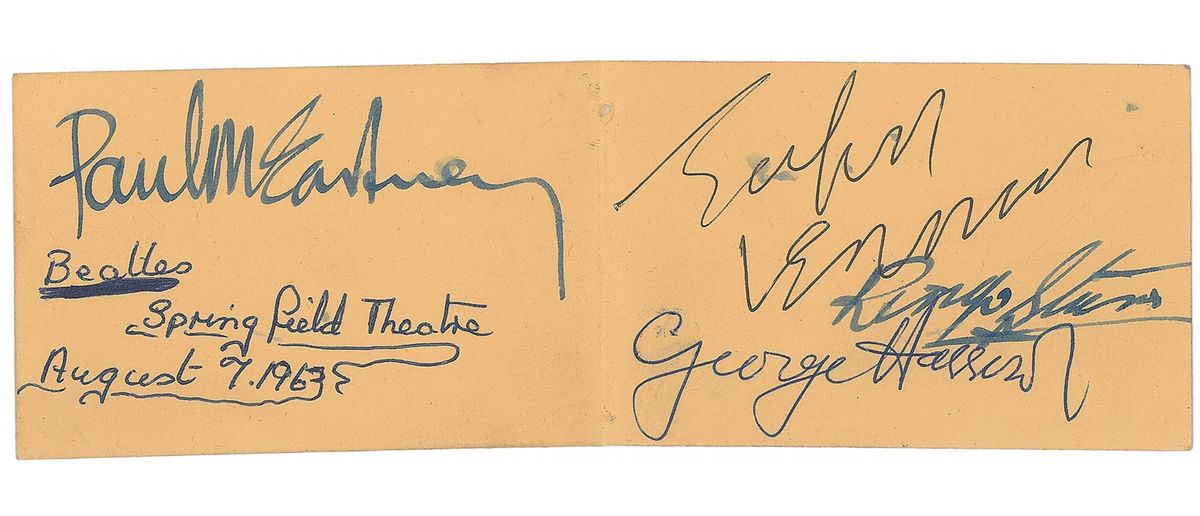 Paul McCartney
Beatles
Springfield Theatre
August 7. 1963
John
Lennon
Ringo Starr
George Harrison